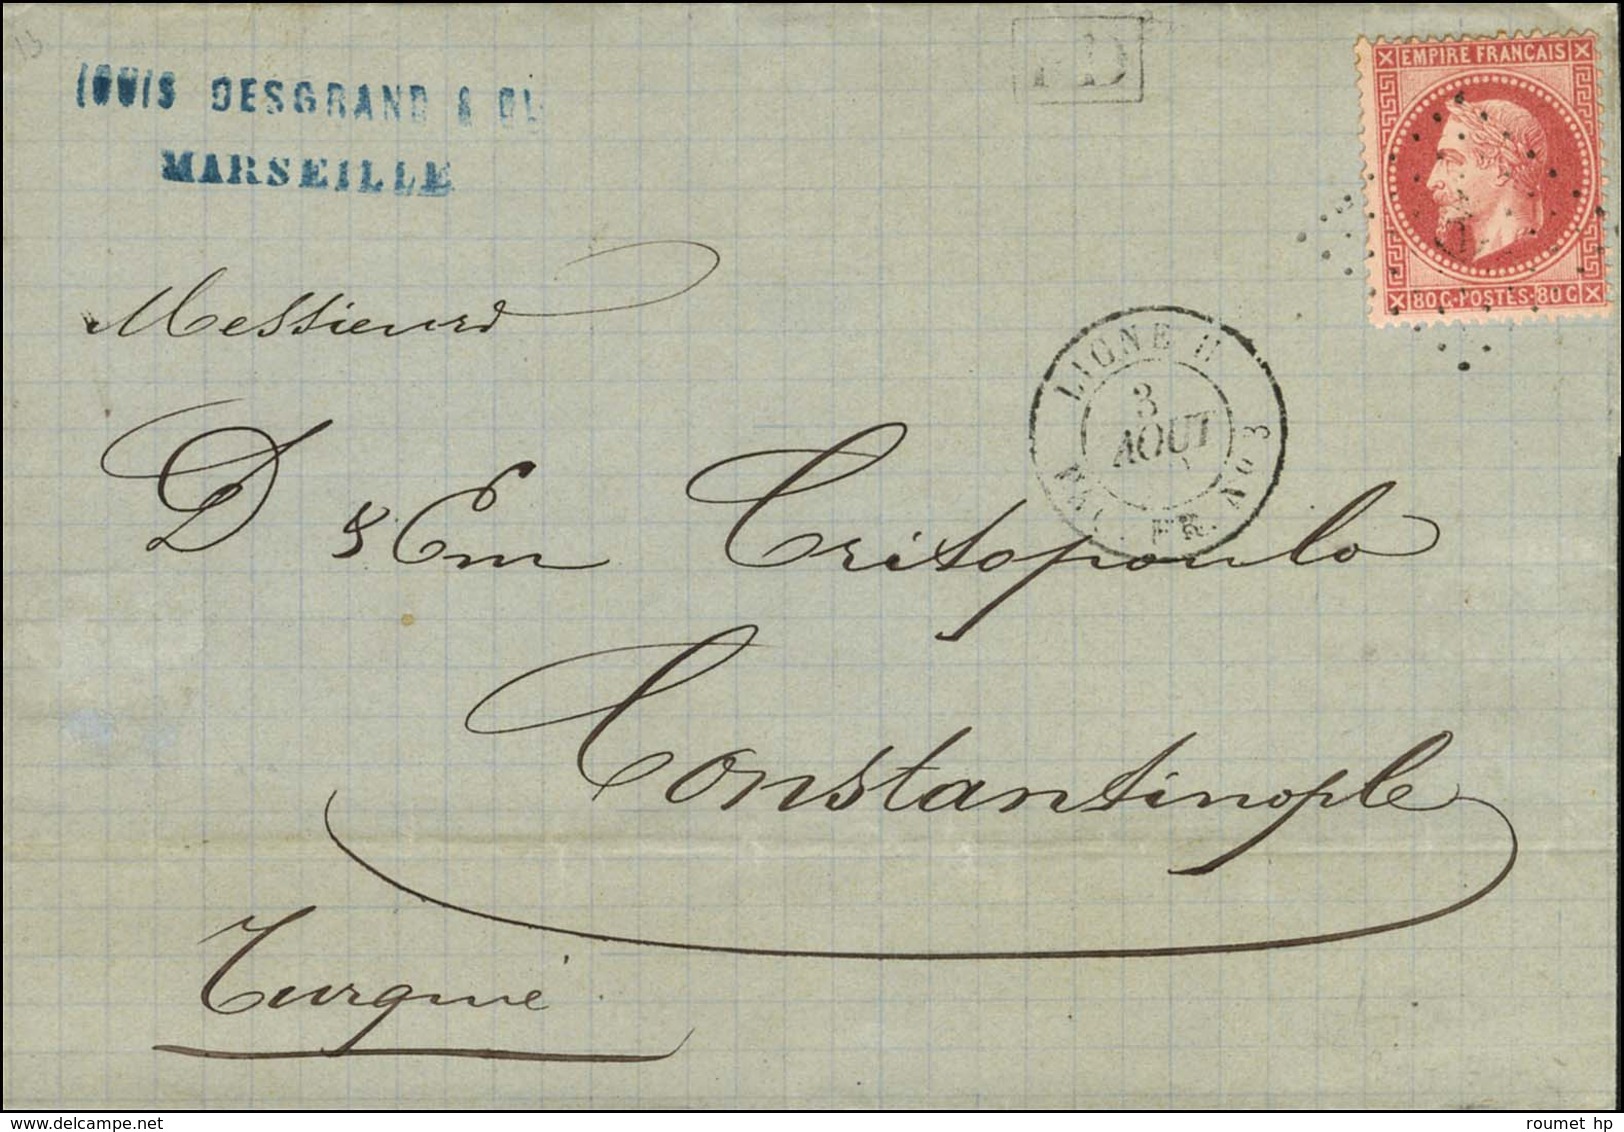 LOUIS DESGRAND &
MARSEILLE
PD
EMPIRE FRANCAIS
80 C·POSTES·80 C
Messieurs
LIGNE
3
AOUT
FR. No 3
D & Em Critopoulo
Constantinople
Turquie
roumet hp